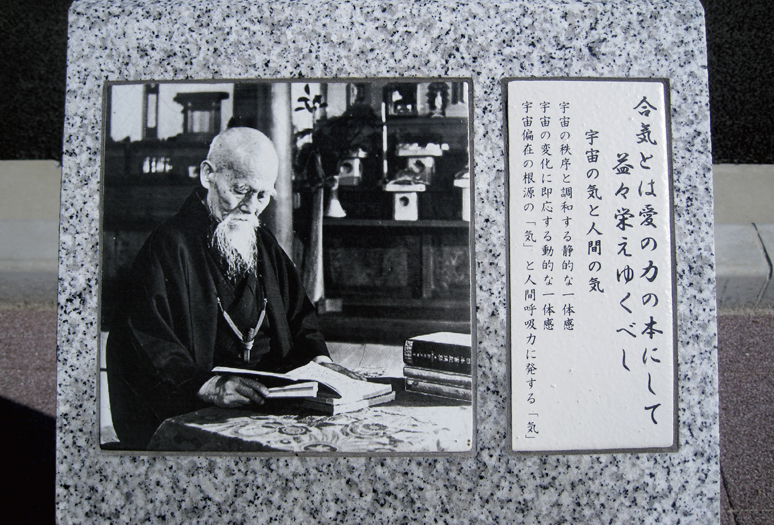 合気とは愛の力の本にして
益々栄えゆくべし
宇宙の気と人間の気
宇宙の秩序と調和する静的な一体感
宇宙の変化に即応する動的な一体感
宇宙偏在の根源の「気」と人間呼吸力に発する「気」